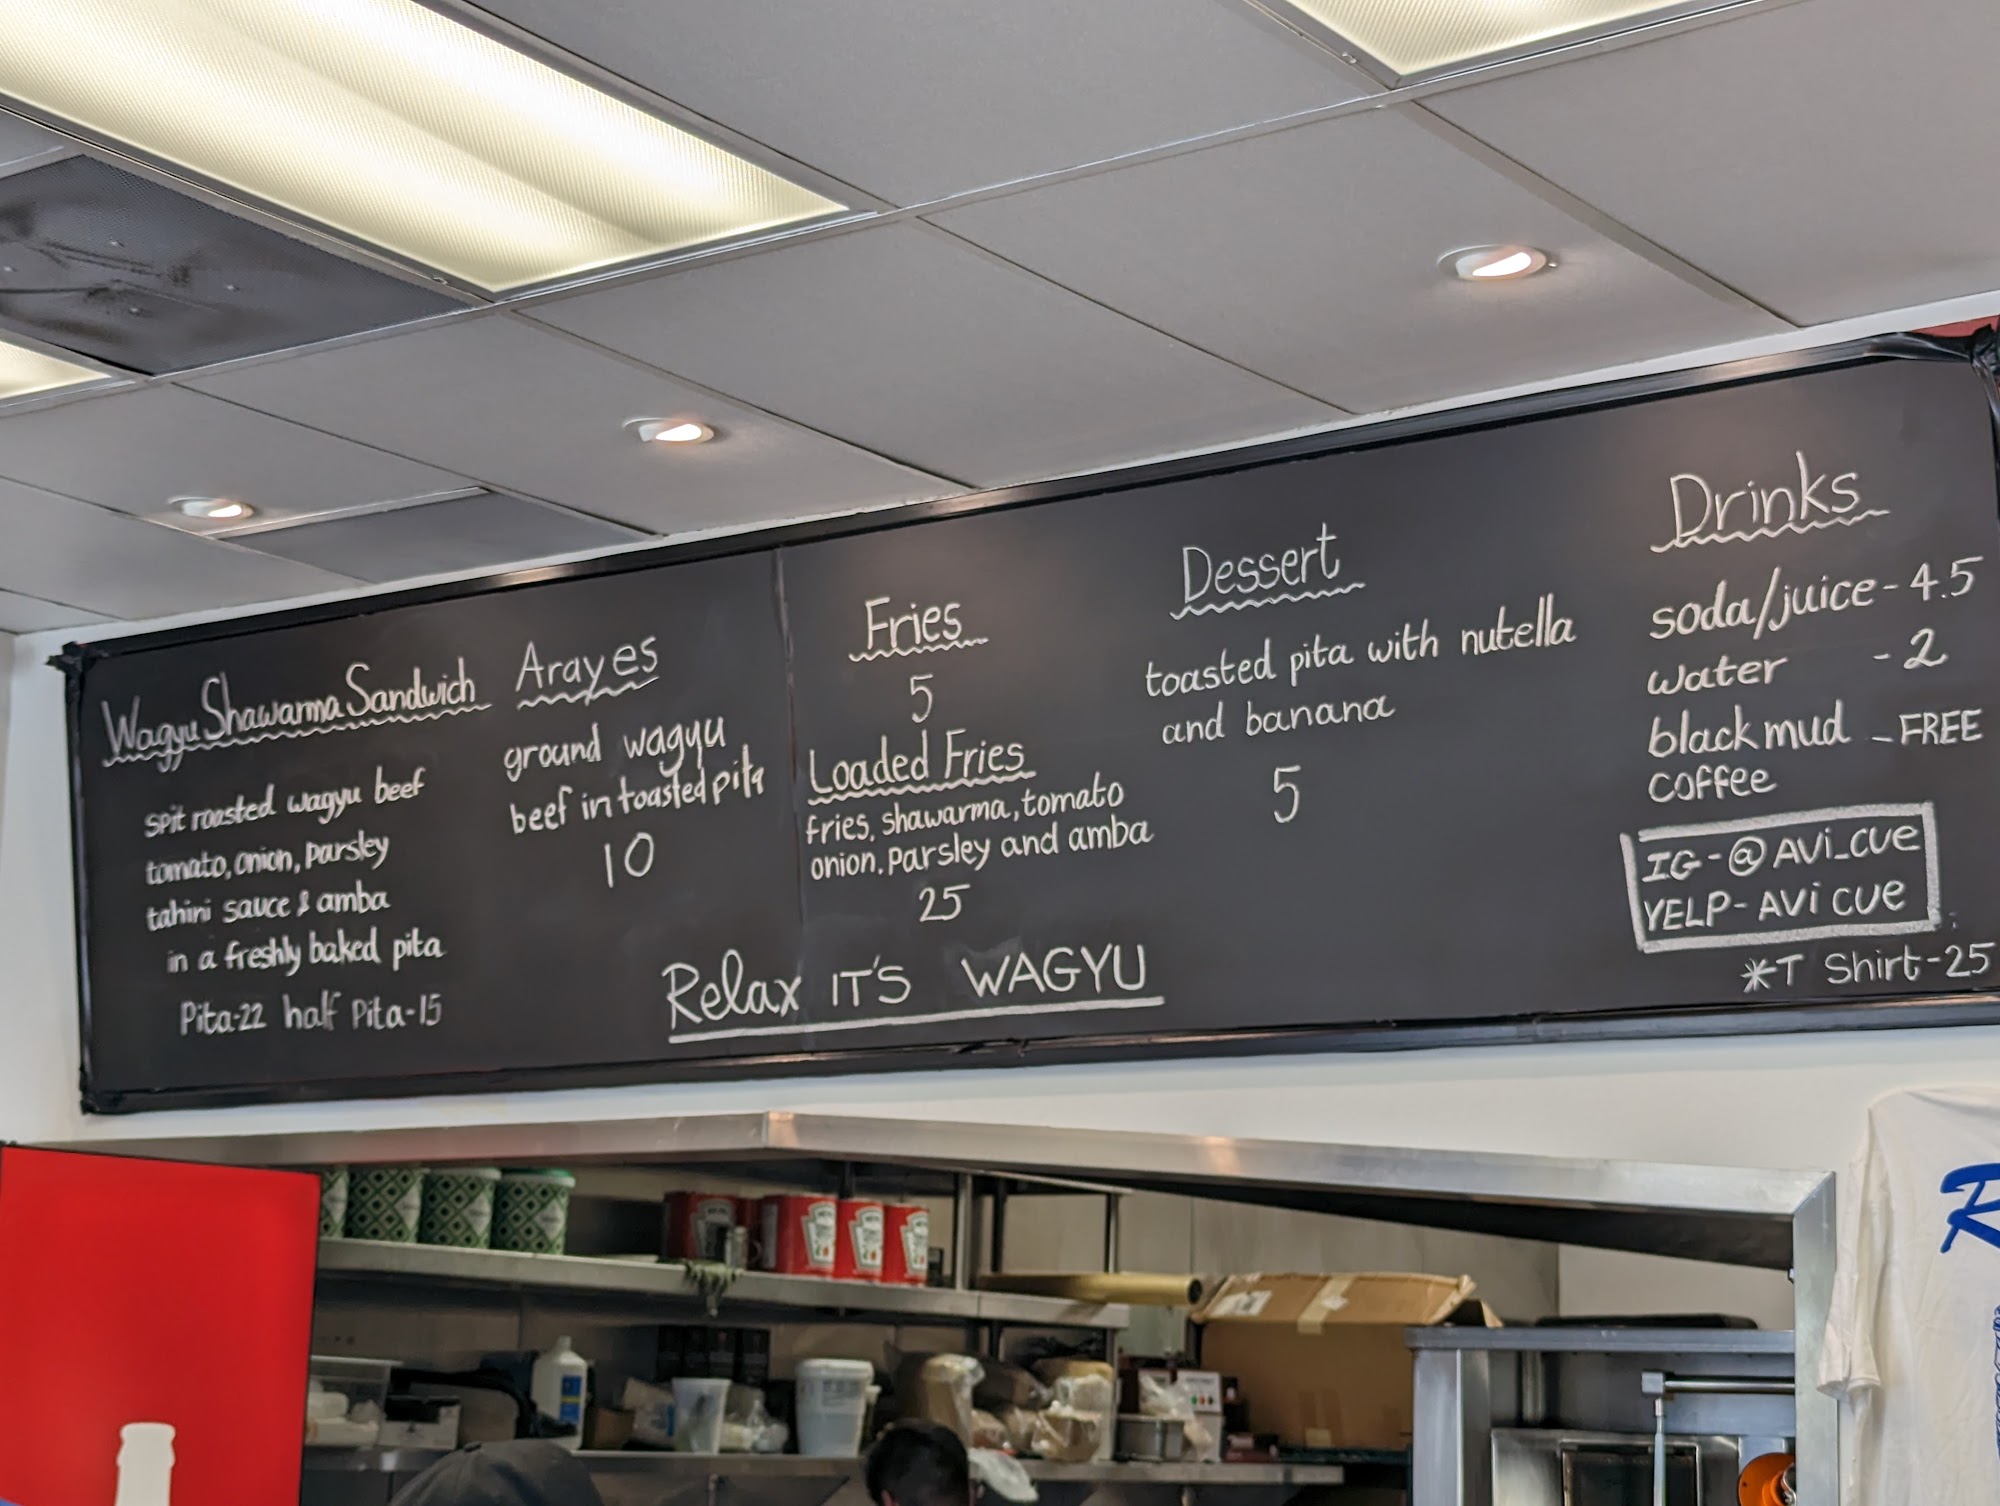 Wagyu Shawarma Sandwich
spit roasted wagyu beef
tomato, onion, parsley
tahini sauce & amba
in a freshly baked pita
Pita-22 half Pita-15
Arayes
ground wagyu
beef in toasted pita
10
Fries
5
Loaded Fries
fries, shawarma, tomato
onion, parsley and amba
25
Relax IT'S WAGYU
Dessert
toasted pita with nutella
and banana
5
Drinks
soda/juice - 4.5
water - 2
black mud - FREE
coffee
IG - @ AVi_CUE
YELP - AVi CUE
*T Shirt - 25